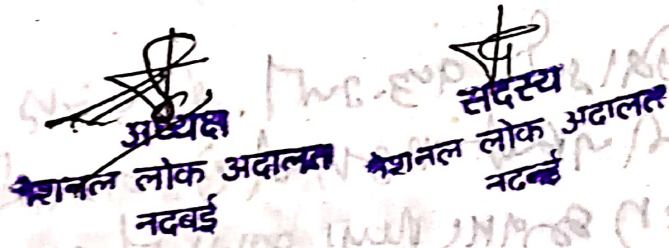 अध्यक्ष
नेशनल लोक अदालत
नदबई
सदस्य
नेशनल लोक अदालत
नदबई